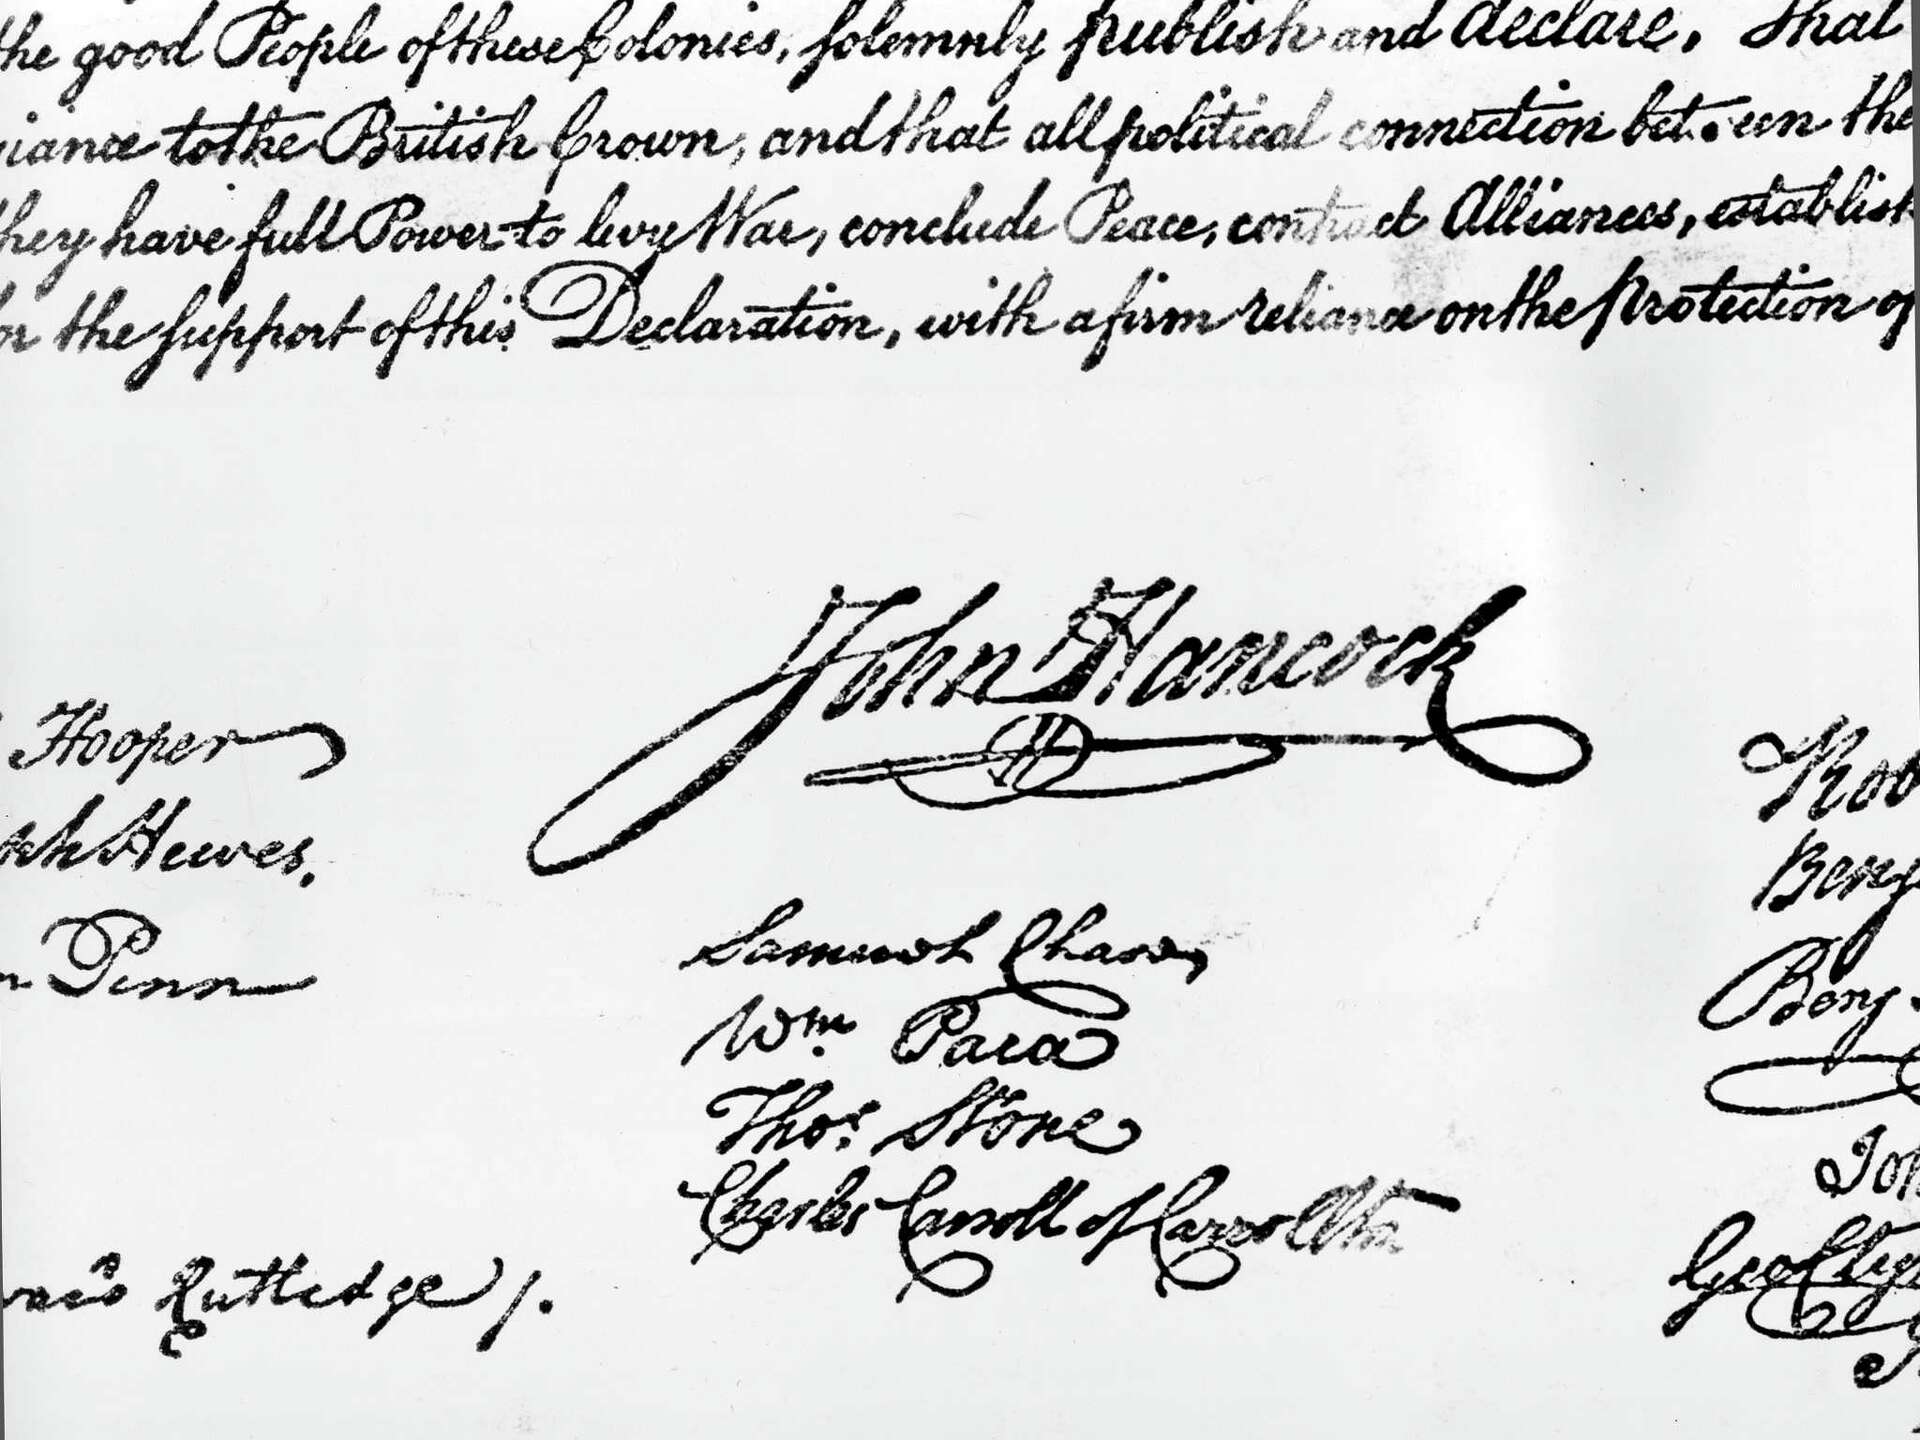 the good People of these Colonies, solemnly publish and declare, That
to the British Crown, and that all political connection between the
they have full Power to levy War, conclude Peace, contract Alliances, establish
for the support of this Declaration, with a firm reliance on the Protection of
John Hancock
Hooper
Hewes,
Penn
Rutledge /.
Samuel Chase
Wm. Paca
Thos. Stone
Charles Carroll of Carrollton
Rob
Benj
Benj
Joh
Geo